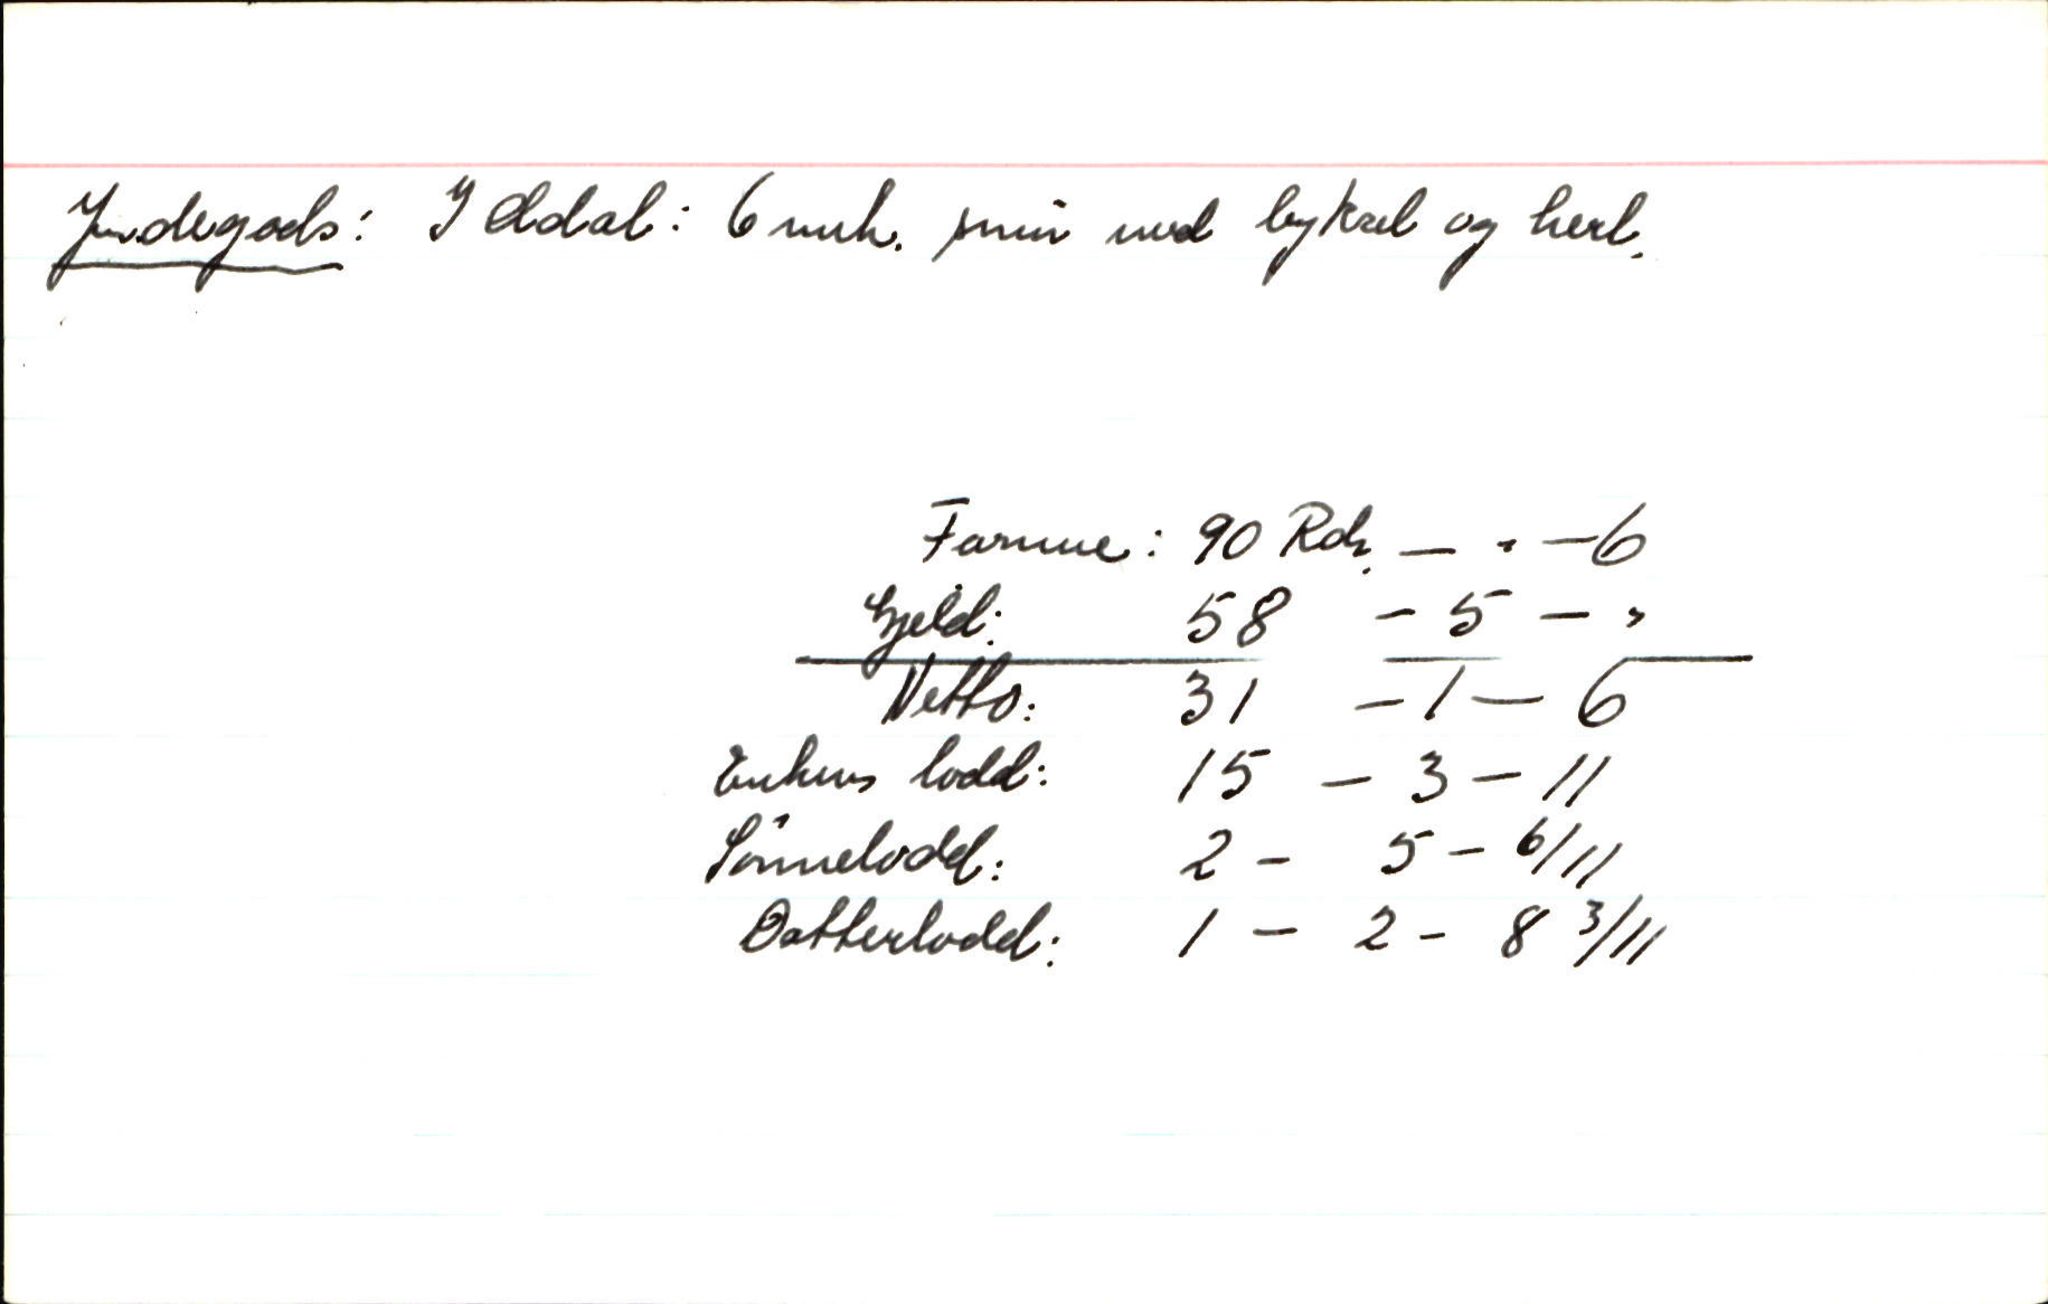 Jordegods: I Oddal: 6 mrk. smør med byksel og herl.
Formue: 90 Rdr. — " — 6
Gjeld: 58 — 5 — "
Netto: 31 — 1 — 6
Enkens lodd: 15 — 3 — 11
Sønnelodd: 2 — 5 — 6/11
Datterlodd: 1 — 2 — 8 3/11